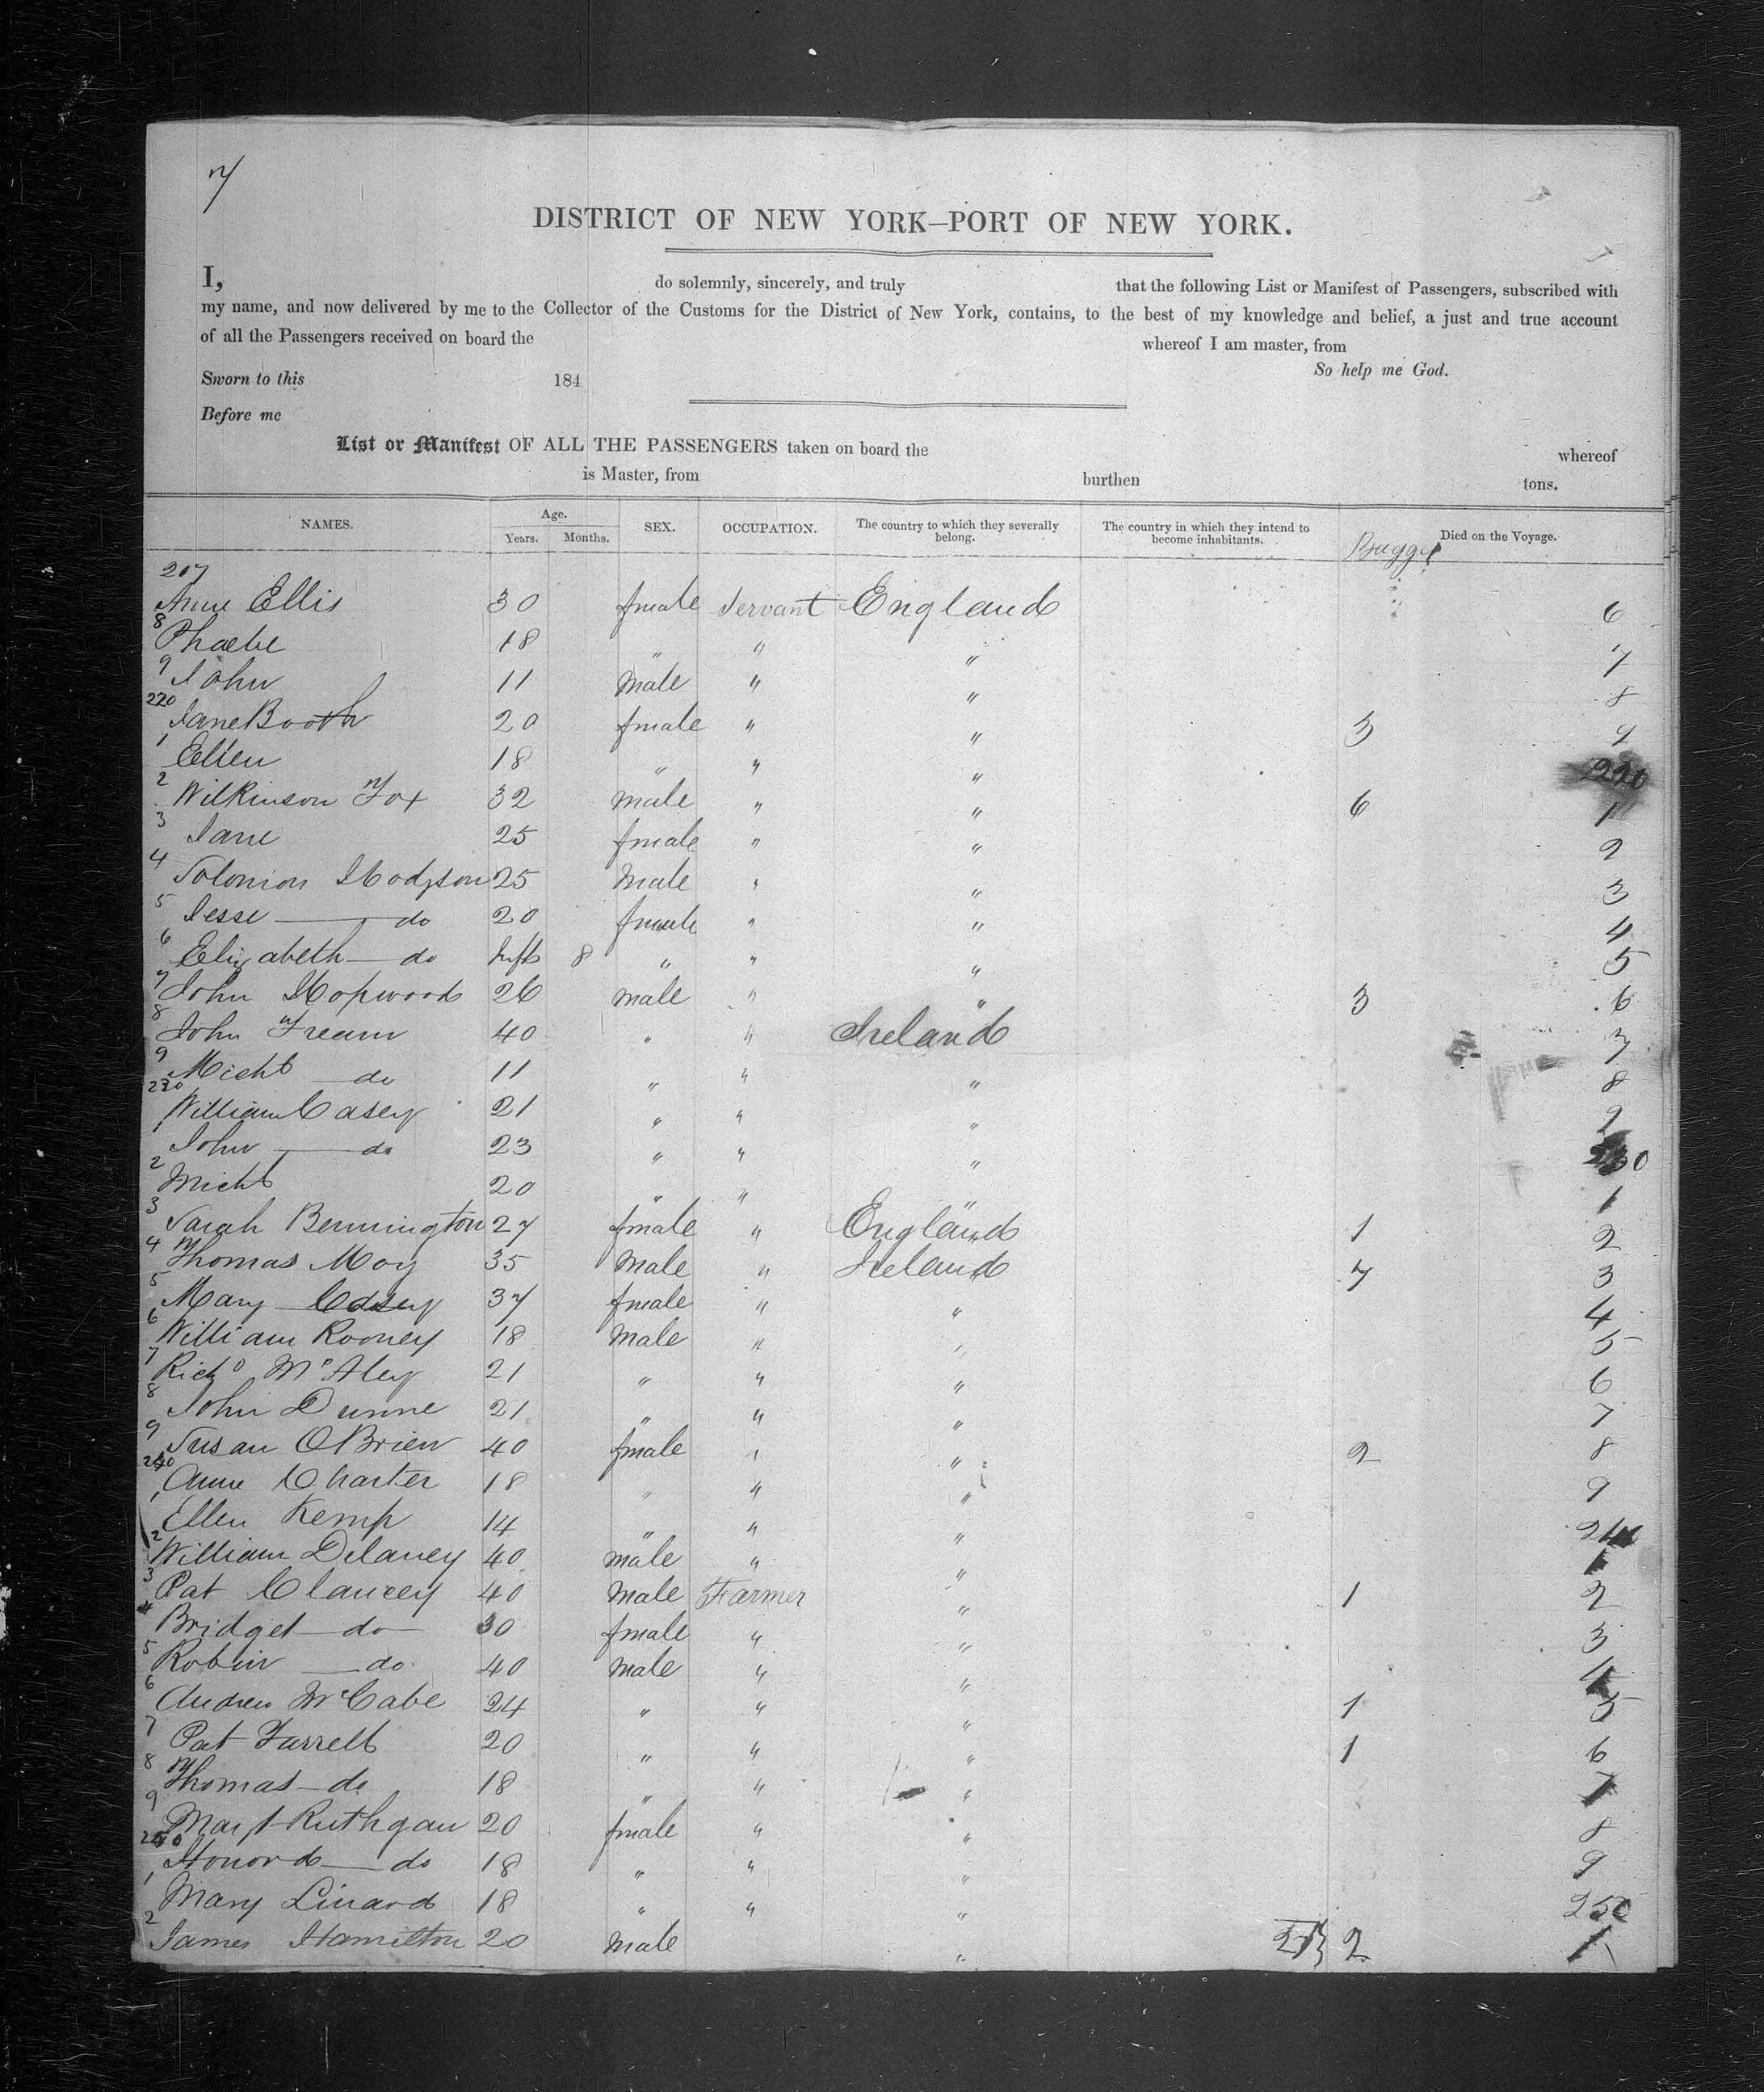 7
DISTRICT OF NEW YORK–PORT OF NEW YORK.
I, do solemnly, sincerely, and truly that the following List or Manifest of Passengers, subscribed with
my name, and now delivered by me to the Collector of the Customs for the District of New York, contains, to the best of my knowledge and belief, a just and true account
of all the Passengers received on board the whereof I am master, from
Sworn to this 184 So help me God.
Before me
List or Manifest OF ALL THE PASSENGERS taken on board the whereof
is Master, from burthen tons.
NAMES. Age. Years. Months. SEX. OCCUPATION. The country to which they severally belong. The country in which they intend to become inhabitants. Died on the Voyage.
217
Anne Ellis 30 fmale Servant England 6
8 Phoebe 18 " " " 7
9 John 11 Male " " 8
220 Jane Booth 20 fmale " " 3 9
1 Ellen 18 " " " 220
2 Wilkinson Fox 32 male " " 6 1
3 Jane 25 fmale " " 2
4 Solomon Hodgson 25 Male " " 3
5 Jesse do 20 fmale " " 4
6 Elizabeth do Inft 8 " " " 5
7 John Hopwood 26 male " " 3 6
8 John Fream 40 " " Ireland 7
9 Michl do 11 " " " 8
230 William Casey 21 " " " 9
1 John do 23 " " " 230
2 Michl 20 " " " 1
3 Sarah Bennington 27 fmale " England 1 2
4 Thomas Moy 35 Male " Ireland 7 3
5 Mary Casey 37 fmale " " 4
6 William Rooney 18 Male " " 5
7 Richd McAley 21 " " " 6
8 John Dunne 21 " " " 7
9 Susan OBrien 40 fmale " " 2 8
240 Anne Charter 18 " " " 9
1 Ellen Kemp 14 " " " 240
2 William Delaney 40 male " " 1
3 Pat Clancey 40 Male Farmer " 1 2
4 Bridget do 30 fmale " " 3
5 Robin do 40 male " " 4
6 Andrew McCabe 24 " " " 1 5
7 Pat Farrell 20 " " " 1 6
8 Thomas do 18 " " " 7
9 Margt Ruthgan 20 fmale " " 8
250 Honord do 18 " " " 9
1 Mary Linard 18 " " " 250
2 James Hamilton 20 Male " 27 2 1